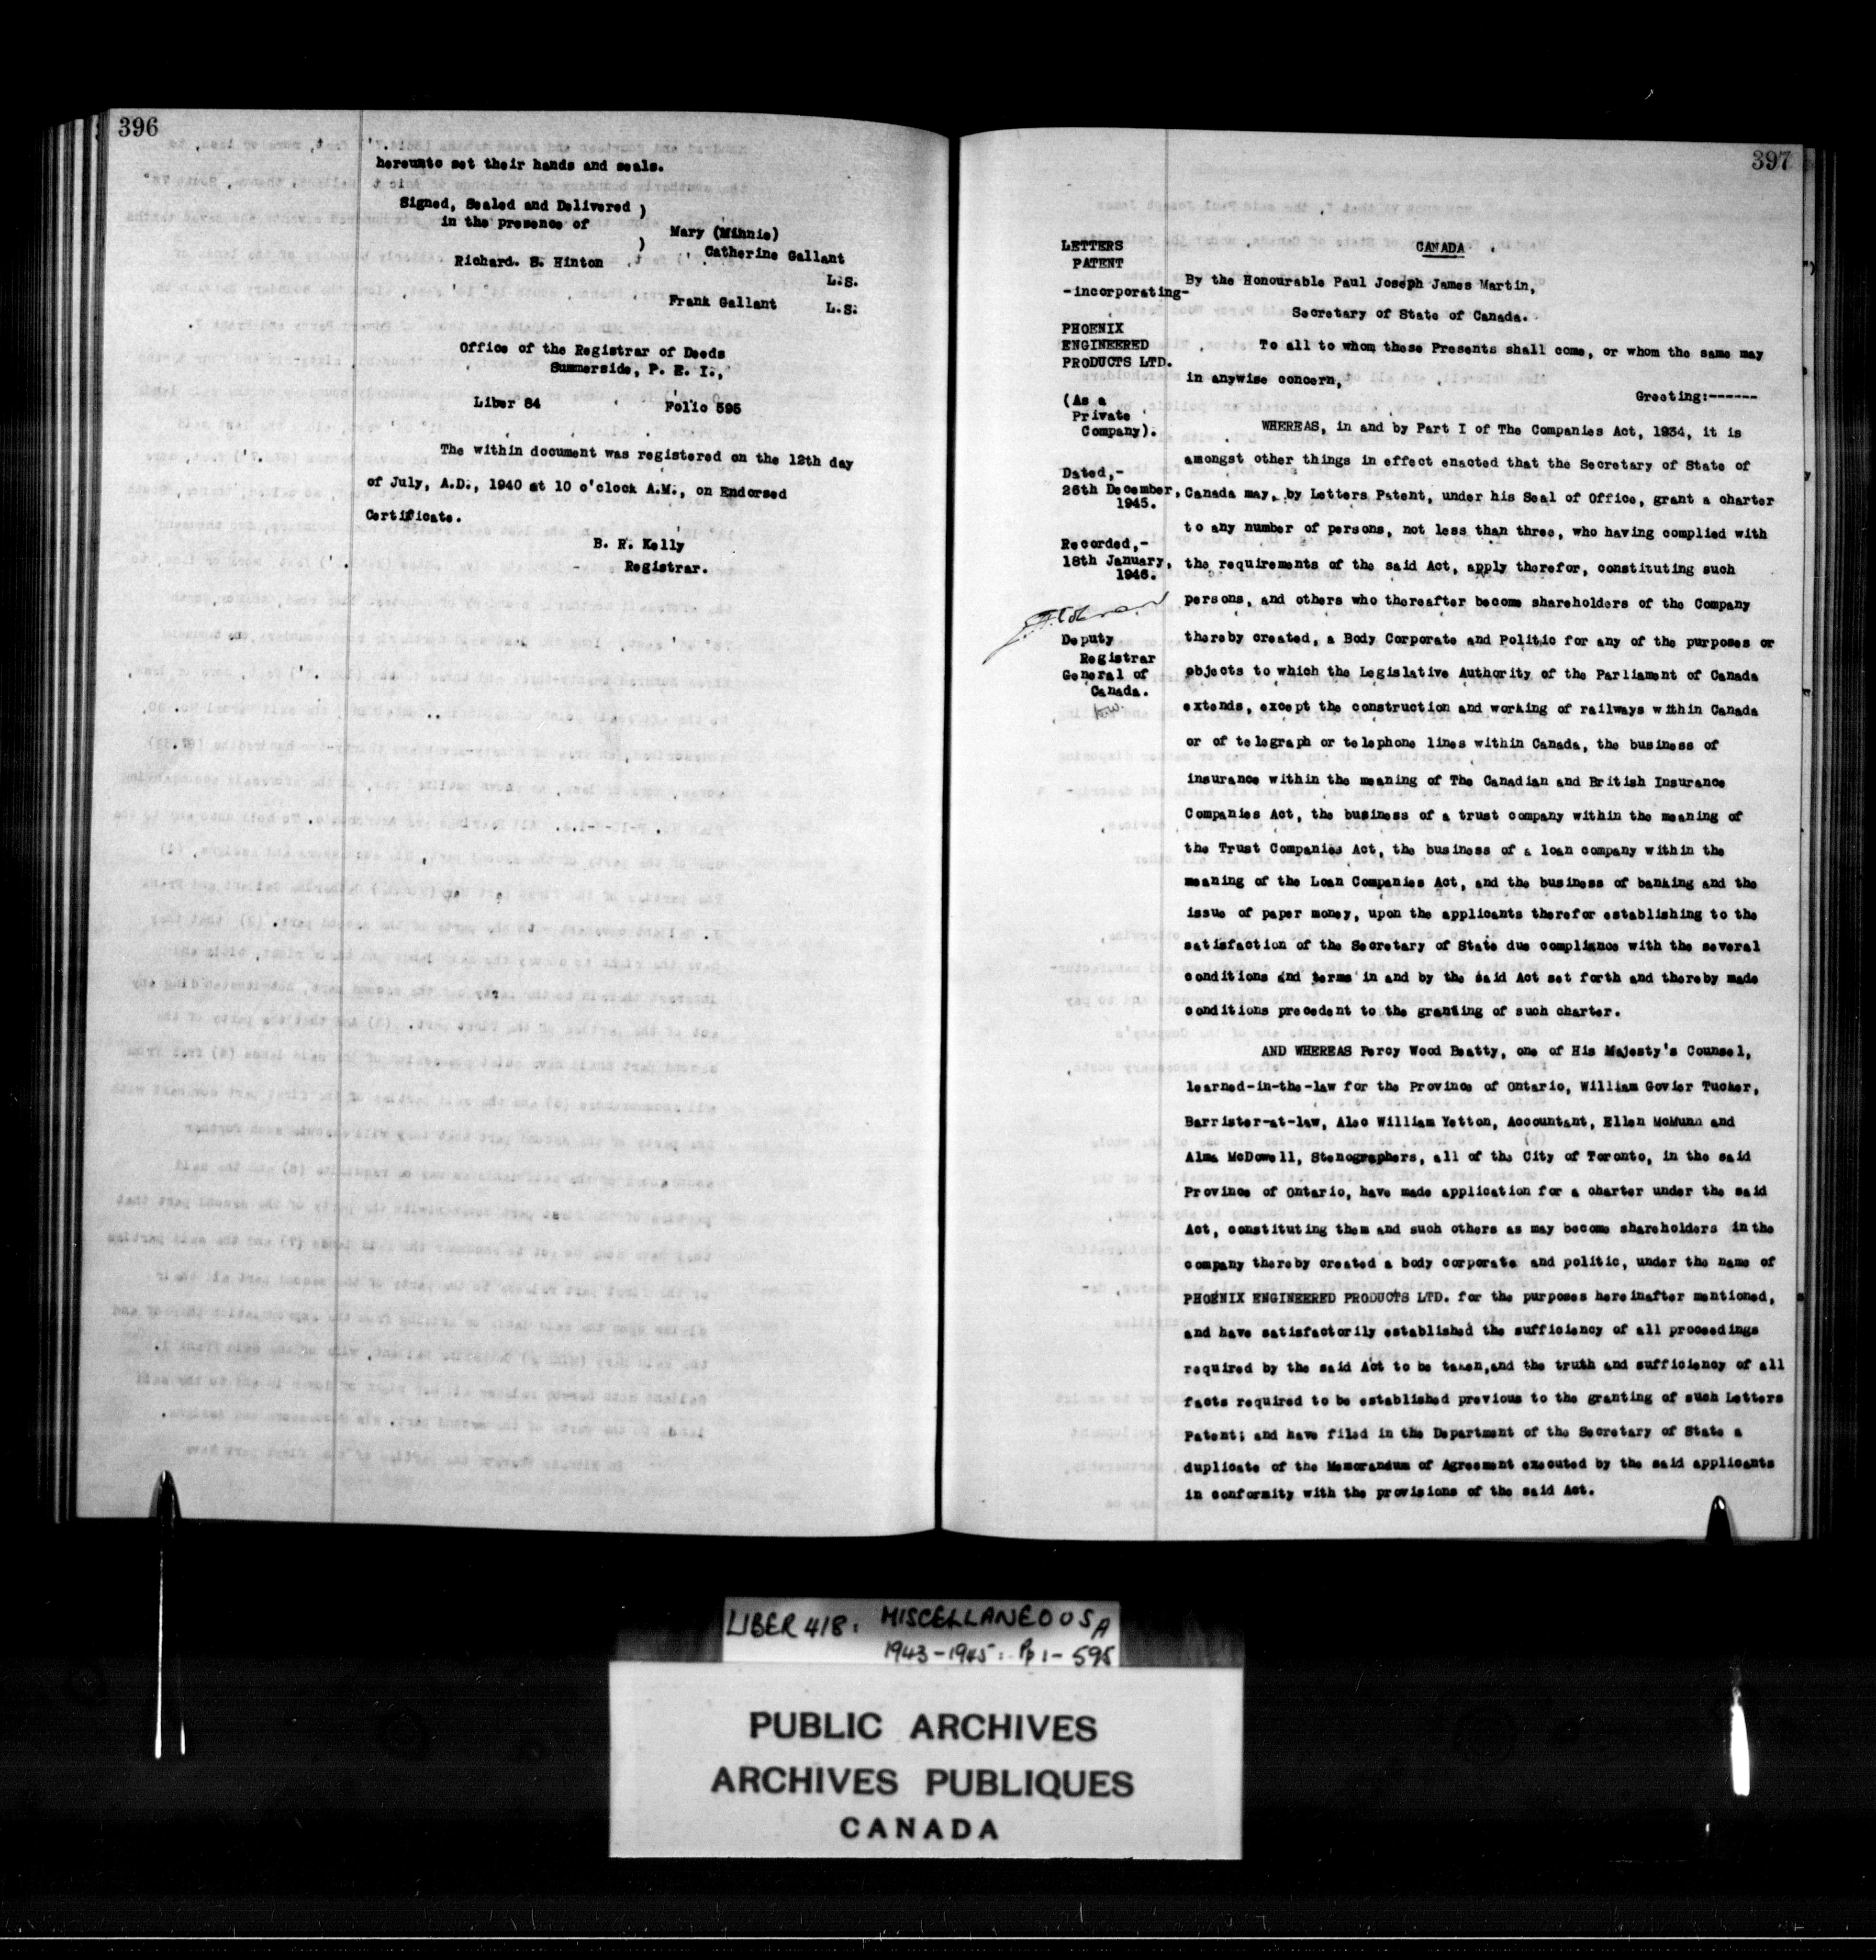 396
hereunto set their hands and seals.
Signed, Sealed and Delivered )
in the presence of
) Mary (Minnie)
Catherine Gallant
Richard. S. Hinton
L.S.
Frank Gallant L.S.
Office of the Registrar of Deeds
Summerside, P. E. I.,
Liber 84 Folio 595
The within document was registered on the 12th day
of July, A.D., 1940 at 10 o'clock A.M., on Endorsed
Certificate.
B. R. Kelly
Registrar.
397
LETTERS
PATENT
-incorporating-
PHOENIX
ENGINEERED
PRODUCTS LTD.
(As a
Private
Company).
Dated,-
26th December,
1945.
Recorded,-
18th January,
1946.
Deputy
Registrar
General of
Canada.
CANADA
By the Honourable Paul Joseph James Martin,
Secretary of State of Canada.
To all to whom these Presents shall come, or whom the same may
in anywise concern,
Greeting:------
WHEREAS, in and by Part I of The Companies Act, 1934, it is
amongst other things in effect enacted that the Secretary of State of
Canada may, by Letters Patent, under his Seal of Office, grant a charter
to any number of persons, not less than three, who having complied with
the requirements of the said Act, apply therefor, constituting such
persons, and others who thereafter become shareholders of the Company
thereby created, a Body Corporate and Politic for any of the purposes or
objects to which the Legislative Authority of the Parliament of Canada
extends, except the construction and working of railways within Canada
or of telegraph or telephone lines within Canada, the business of
insurance within the meaning of The Canadian and British Insurance
Companies Act, the business of a trust company within the meaning of
the Trust Companies Act, the business of a loan company within the
meaning of the Loan Companies Act, and the business of banking and the
issue of paper money, upon the applicants therefor establishing to the
satisfaction of the Secretary of State due compliance with the several
conditions and terms in and by the said Act set forth and thereby made
conditions precedent to the granting of such charter.
AND WHEREAS Percy Wood Beatty, one of His Majesty's Counsel,
learned-in-the-law for the Province of Ontario, William Govier Tucker,
Barrister-at-law, Alec William Yetton, Accountant, Ellen McMunn and
Alma McDowell, Stenographers, all of the City of Toronto, in the said
Province of Ontario, have made application for a charter under the said
Act, constituting them and such others as may become shareholders in the
company thereby created a body corporate and politic, under the name of
PHOENIX ENGINEERED PRODUCTS LTD. for the purposes hereinafter mentioned,
and have satisfactorily established the sufficiency of all proceedings
required by the said Act to be taken,and the truth and sufficiency of all
facts required to be established previous to the granting of such Letters
Patent; and have filed in the Department of the Secretary of State a
duplicate of the Memorandum of Agreement executed by the said applicants
in conformity with the provisions of the said Act.
LIBER 418: MISCELLANEOUS A
1943-1945: Pp 1- 595
PUBLIC ARCHIVES
ARCHIVES PUBLIQUES
CANADA